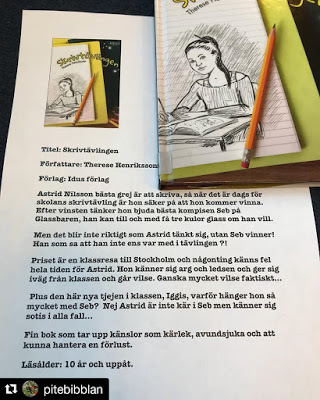 Skrivtävlingen
Therese
Skrivtävlingen
Therese Henriksson
Titel: Skrivtävlingen
Författare: Therese Henriksson
Förlag: Idus förlag
Astrid Nilsson bästa grej är att skriva, så när det är dags för
skolans skrivtävling er hon säker på att hon kommer vinna.
Efter vinsten tänker hon bjuda bästa kompisen Seb på
Glassbaren, han kan till och med få tre kulor glass om han vill.
Men det blir inte riktigt som Astrid tänkt sig, utan Seb vinner!
Han som sa att han inte ens var med i tävlingen ?!
Priset är en klassresa till Stockholm och någonting känns fel
hela tiden för Astrid. Hon känner sig arg och ledsen och ger sig
iväg från klassen och går vilse. Ganska mycket vilse faktiskt...
Plus den här nya tjejen i klassen, Iggis, varför hänger hon så
mycket med Seb? Nej Astrid är inte kär i Seb men känner sig
sotis i alla fall...
Fin bok som tar upp känslor som kärlek, avundsjuka och att
kunna hantera en förlust.
Läsålder: 10 år och uppåt.
pitebibblan